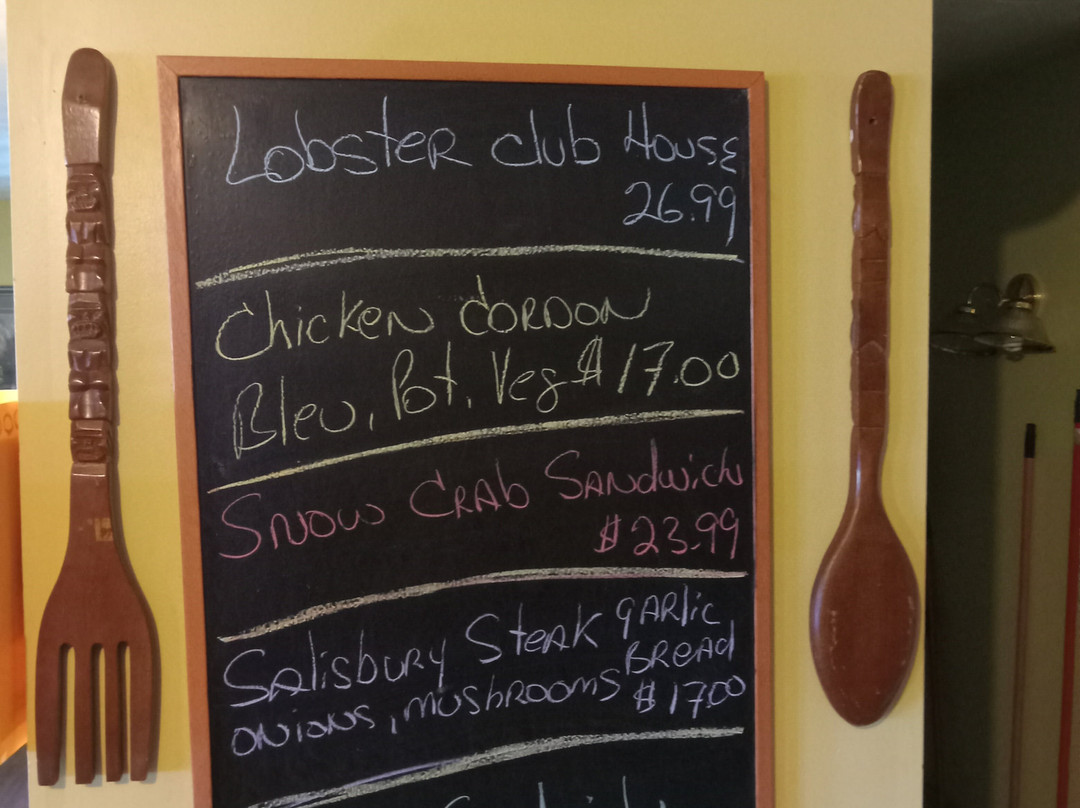 Lobster club House
26.99
Chicken Cordon
Bleu, Pot, Veg $17.00
Snow Crab Sandwich
$23.99
Salisbury Steak garlic
Bread
onions, mushrooms $17.00